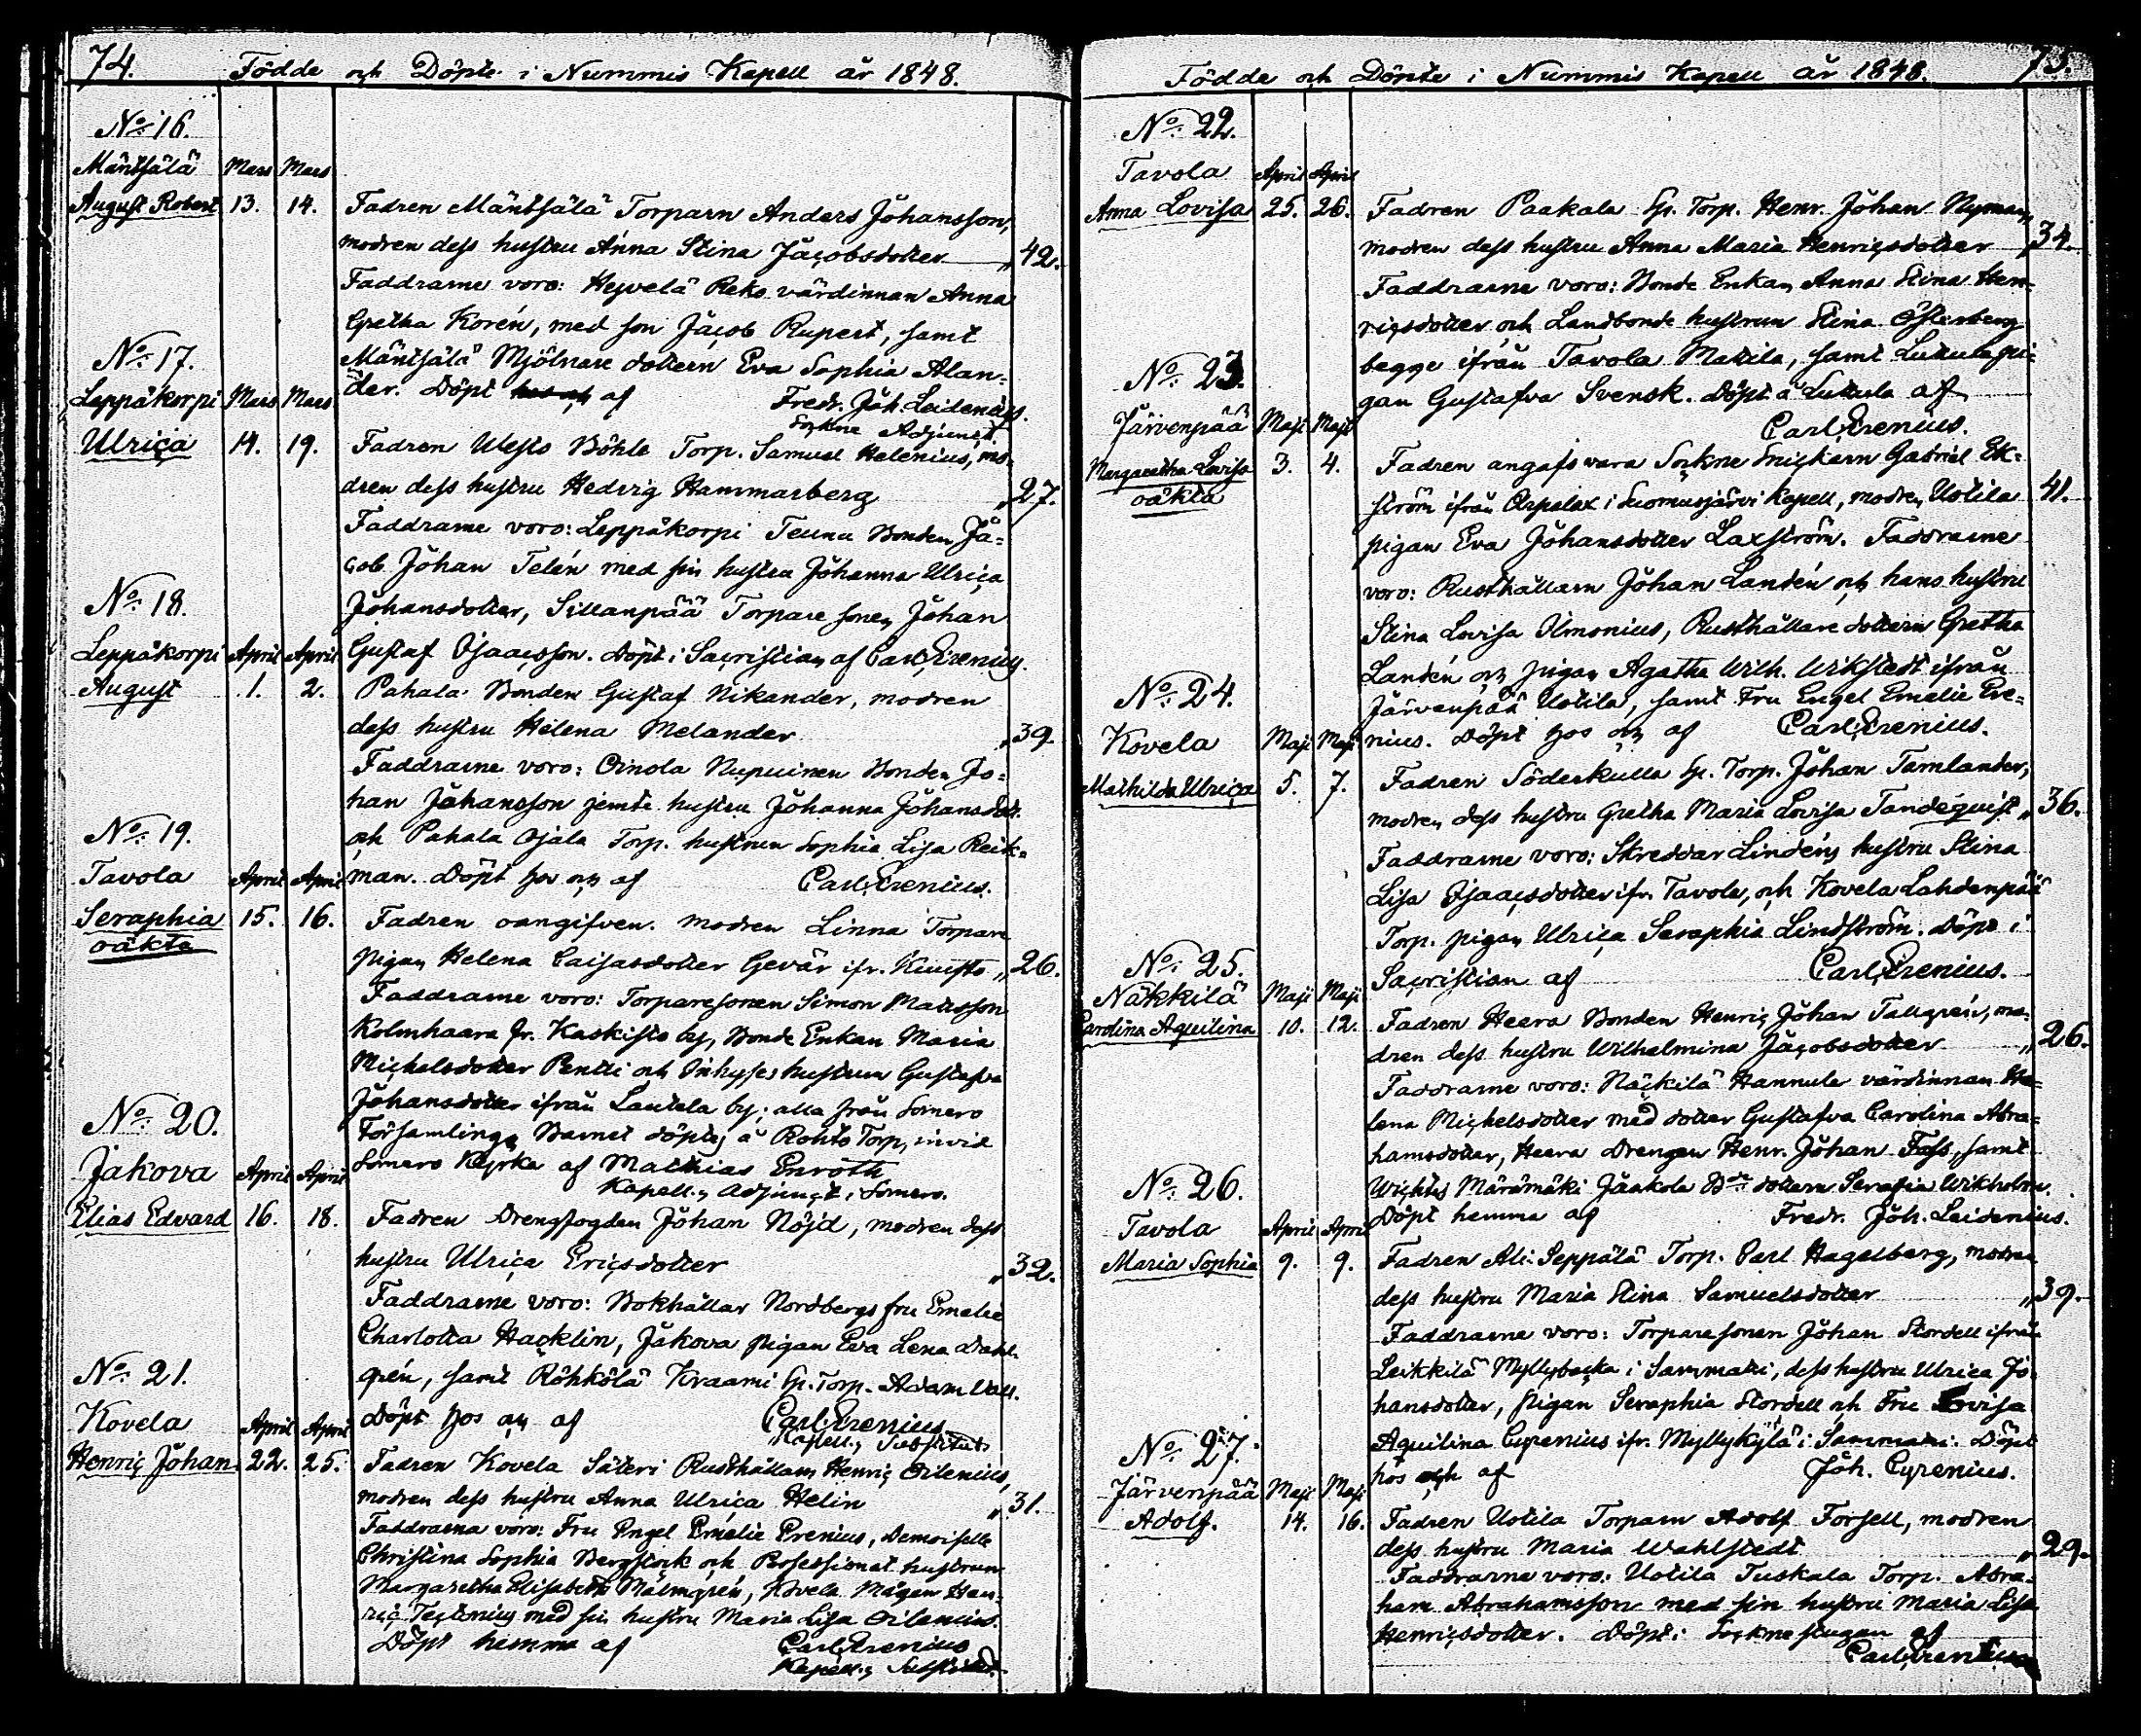 74.
Födde och Döpte i Nummis Kapell år 1848.
No. 16.
Mäntsälä Mars Mars
August Robert 13. 14. Fadren Mäntsälä Torparn Anders Johansson,
modren dess hustru Anna Stina Jacobsdotter „42.
Faddrarne voro: Heyvelä Reko värdinnan Anna
Gretha Korén, med son Jacob Rupert, samt
No. 17.
Mäntsälä Mjölnare dottern Eva Sophia Alan=
Leppäkorpi Mars Mars der. Döpt af Fredr. Joh. Leidenius.
Sockne Adjunct.
Ulrica 14. 19. Fadren Böhle Torp. Samuel Helenius, mo=
dren dess hustru Hedvig Hammarberg „27.
Faddrarne voro: Leppäkorpi Teunu Bonden Ja=
cob Johan Telén med sin hustru Johanna Ulrica
No. 18.
Johansdotter, Sillanpää Torpare sonen Johan
Leppäkorpi April April Gustaf Isaacsson. Döpt i Sacristian af Carl Erenius.
August 1. 2. Pahala Bonden Gustaf Nikander, modren
dess hustru Helena Melander „39.
Faddrarne voro: Oinola Nupuinen Bonden Jo=
han Johansson jemte hustru Johanna Johansdott.
No. 19.
och Pahala Ojala Torp. hustrun Sophia Lisa Reik=
Tavola April April man. Döpt hos och af Carl Erenius.
Seraphia 15. 16. Fadren oangifven. modren Linna Torpare
oäkta
pigan Helena Caisasdotter Gevär ifr. „26.
Faddrarne voro: Torparesonen Simon Matsson
Kolmhaara fr. Kaskisto by, Bonde Enkan Maria
Michelsdotter Pentti och Inhyses hustrun Gustafva
Johansdotter ifrån Lautela by; alla från Somero
No. 20.
Församling. Barnet döptes å Rohto Torp, invid
Jakova April April Somero Kyrka af Mathias Enroth
Kapell.s Adjunct i Somero.
Elias Edvard 16. 18. Fadren Drengfogden Johan Nöjd, modren dess
hustru Ulrica Ericsdotter „32.
Faddrarne voro: Bokhållar Nordbergs fru Emelie
Charlotta Hacklin, Jakova pigan Eva Lena Dahl=
No. 21.
grén, samt Röhkölä Kraami Sp. Torp. Adam
Kovela April April Döpt hos och af Carl Erenius
Kapell.s Substitut
Henric Johan 22. 25. Fadren Kovela Säteri Rusthållarn Henric Oilenius,
modren dess hustru Anna Ulrica Helin „31.
Faddrarna voro: Fru Engel Emelie Erenius, Demoiselle
Christina Sophia Bergstock och Professionat hustrun
Margaretha Elisabeth Malmgrén, Kovela Mågen Hen=
ric Tectonius med sin hustru Maria Lisa Oilenius.
Döpt hemma af Carl Erenius
Kapell.s Substitut.
75.
Födde och Döpte i Nummis Kapell år 1848.
No. 22.
Tavola April April
Anna Lovisa 25. 26. Fadren Paakala Sp. Torp. Henr. Johan Nyman,
modren dess hustru Anna Maria Henricsdotter „34.
Faddrarne voro: Bonde Enkan Anna Stina Hen=
ricsdotter och Landbonde hustrun Stina Österberg
No. 23.
begge ifrån Tavola Mattila, samt Lukula pi=
gan Gustafva Svensk. Döpt å Lukula af
Järvenpää Maji Maji Carl Erenius.
Margaretha Lovisa 3. 4. Fadren angafs vara Sockne Snickarn Gabriel Ek=
oäkta
ström ifrån Arpalax i Suomusjärvi Kapell, modren Uotila 41.
pigan Eva Johansdotter Laxström. Faddrarne
voro: Rusthållarn Johan Landén och hans hustru
Stina Lovisa Ilmonius, Rusthållare dottern Gretha
Landén och pigan Agatha Wilh. Wikstedt ifrån
No. 24.
Järvenpää Uotila, samt Fru Engel Emelie Ere=
Kovela Maji Maji nius. Döpt hos och af Carl Erenius.
Mathilda Ulrica 5. 7. Fadren Söderkulla Sp. Torp. Johan Tamlander,
modren dess hustru Gretha Maria Lovisa Tandequist „36.
Faddrarne voro: Skreddar Lindéns hustru Stina
Lisa Isaacsdotter ifr. Tavola, och Kovela Lahdenpää
Torp. pigan Ulrica Seraphia Lindström. Döpt i
No. 25.
Sacristian af Carl Erenius.
Näkkilä Maji Maji
Carolina Aquilina 10. 12. Fadren Heera Bonden Henric Johan Tallgrén, mo=
dren dess hustru Wilhelmina Jacobsdotter „26.
Faddrarne voro: Näckilä Hannula värdinnan He=
lena Michelsdotter med dotter Gustafva Carolina Abra=
hamsdotter, Heera Drengen Henr. Johan Fass, samt
No. 26.
Wichtis Märämäki Jaakola dottern Serafia Wikholm.
Döpt hemma af Fredr. Joh. Leidenius.
Tavola April April
Maria Sophia 9. 9. Fadren Ali-Seppälä Torp. Carl Hagelberg, modren
dess hustru Maria Stina Samuelsdotter „39.
Faddrarne voro: Torparesonen Johan Stordell ifrån
Leikkilä Myllybacka i Sammatti, dess hustru Ulrica Jo=
hansdotter, pigan Seraphia Stordell och Fru Lovisa
No. 27.
Aquilina Cyrenius ifr. Myllykylä i Sammatti. Döpt
hos och af Joh. Cyrenius.
Järvenpää Maji Maji
Adolf. 14. 16. Fadren Uotila Torparn Adolf Forsell, modren
dess hustru Maria Wahlstedt „29.
Faddrarne voro: Uotila Tuskala Torp. Abra=
ham Abrahamsson med sin hustru Maria Lisa
Henricsdotter. Döpt i Sockne stugan af
Carl Erenius